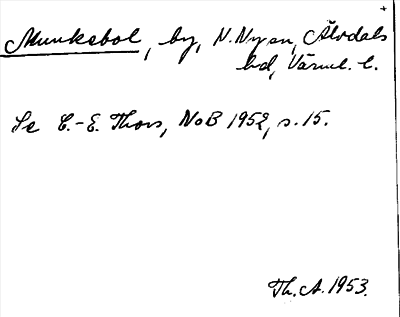 +
Munkebol, by, N. Nyen, Älvdals
hd, Värml. l.
Se C.-E. Thors, NoB 1952, s. 15.
Th. A. 1953.